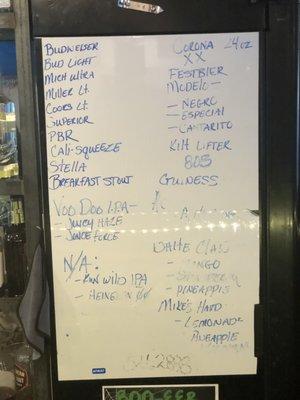 Budweiser
Bud Light
Mich Ultra
Miller Lt.
Coors Lt.
Superior
PBR
Cali-Squeeze
Stella
Breakfast Stout
Voo Doo IPA-
- Juicy Haze
- Juice Force
N/A:
- Run Wild IPA
- Heineken 0/0
Corona 24oz
XX
Festbier
Modelo -
- Negro
- Especial
- Cantarito
Kilt Lifter
805
Guiness
White Claw
- Mango
- Pineapple
Mike's Hard
- Lemonade
Pineapple